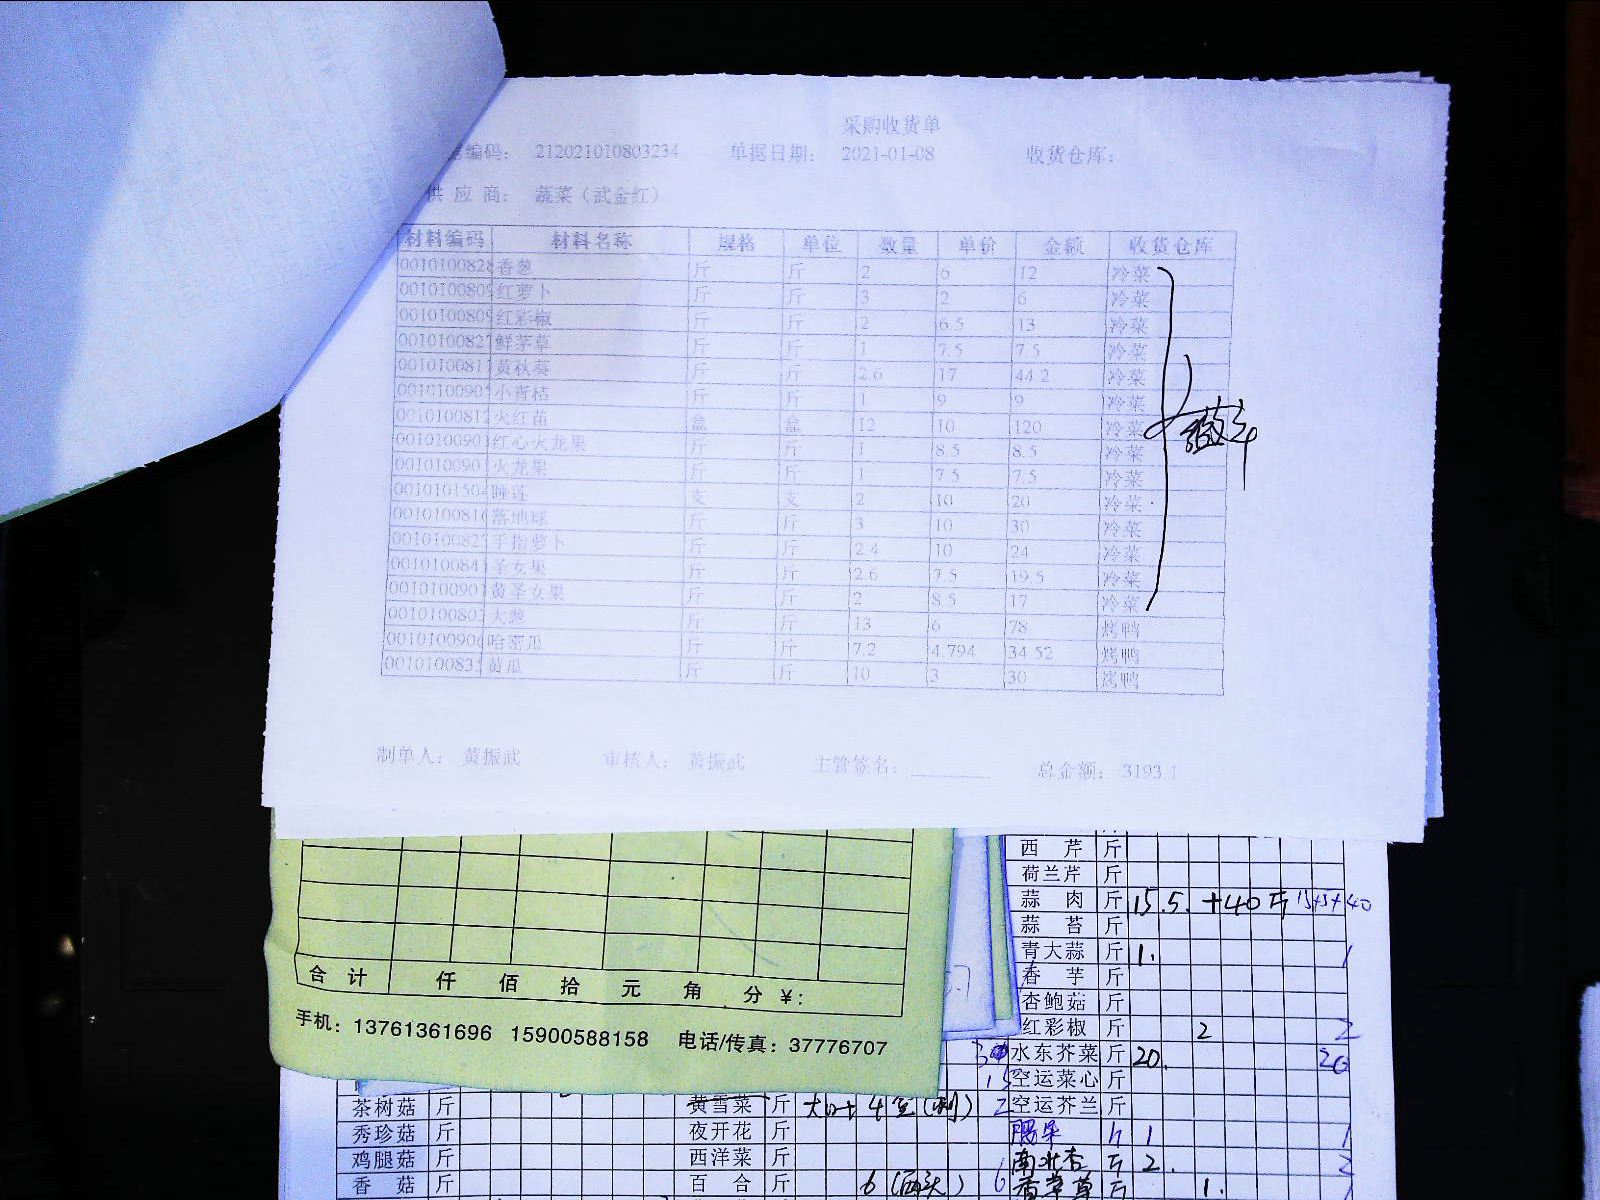 采购收货单
编码： 212021010803234 单据日期： 2021-01-08 收货仓库：
供 应 商： 蔬菜（武金红）
材料编码 材料名称 规格 单位 数量 单价 金额 收货仓库
0010100828 香葱 斤 斤 2 6 12 冷菜
001010080 红萝卜 斤 斤 3 2 6 冷菜
001010080 红彩椒 斤 斤 2 6.5 13 冷菜
001010082 鲜茅草 斤 斤 1 7.5 7.5 冷菜
001010081 黄秋葵 斤 斤 2.6 17 44.2 冷菜
001010090 小青桔 斤 斤 1 9 9 冷菜
001010081 火红苗 盒 盒 12 10 120 冷菜
001010090 红心火龙果 斤 斤 1 8.5 8.5 冷菜
001010090 火龙果 斤 斤 1 7.5 7.5 冷菜
001010150 睡莲 支 支 2 10 20 冷菜
001010081 落地球 斤 斤 3 10 30 冷菜
001010082 手指萝卜 斤 斤 2.4 10 24 冷菜
001010084 圣女果 斤 斤 2.6 7.5 19.5 冷菜
001010090 黄圣女果 斤 斤 2 8.5 17 冷菜
001010080 大葱 斤 斤 13 6 78 烤鸭
001010090 哈密瓜 斤 斤 7.2 4.794 34.52 烤鸭
001010083 黄瓜 斤 斤 10 3 30 烤鸭
制单人： 黄振武 审核人： 黄振武 主管签名： 总金额： 3193.1
合 计 仟 佰 拾 元 角 分 ￥：
手机：13761361696 15900588158 电话/传真：37776707
西 芹 斤
荷兰芹 斤
蒜 肉 斤 15.5. +40斤 15+5+40
蒜 苔 斤
青大蒜 斤 1. 1
香 芋 斤
杏鲍菇 斤
红彩椒 斤 2 2
水东芥菜 斤 20. 20
空运菜心 斤
茶树菇 斤 黄雪菜 斤 2 空运芥兰 斤
秀珍菇 斤 夜开花 斤 腰果 斤 1 1
鸡腿菇 斤 西洋菜 斤 南北杏 斤 2. 2
香 菇 斤 百 合 斤 6 6 香草草 斤 1. 1